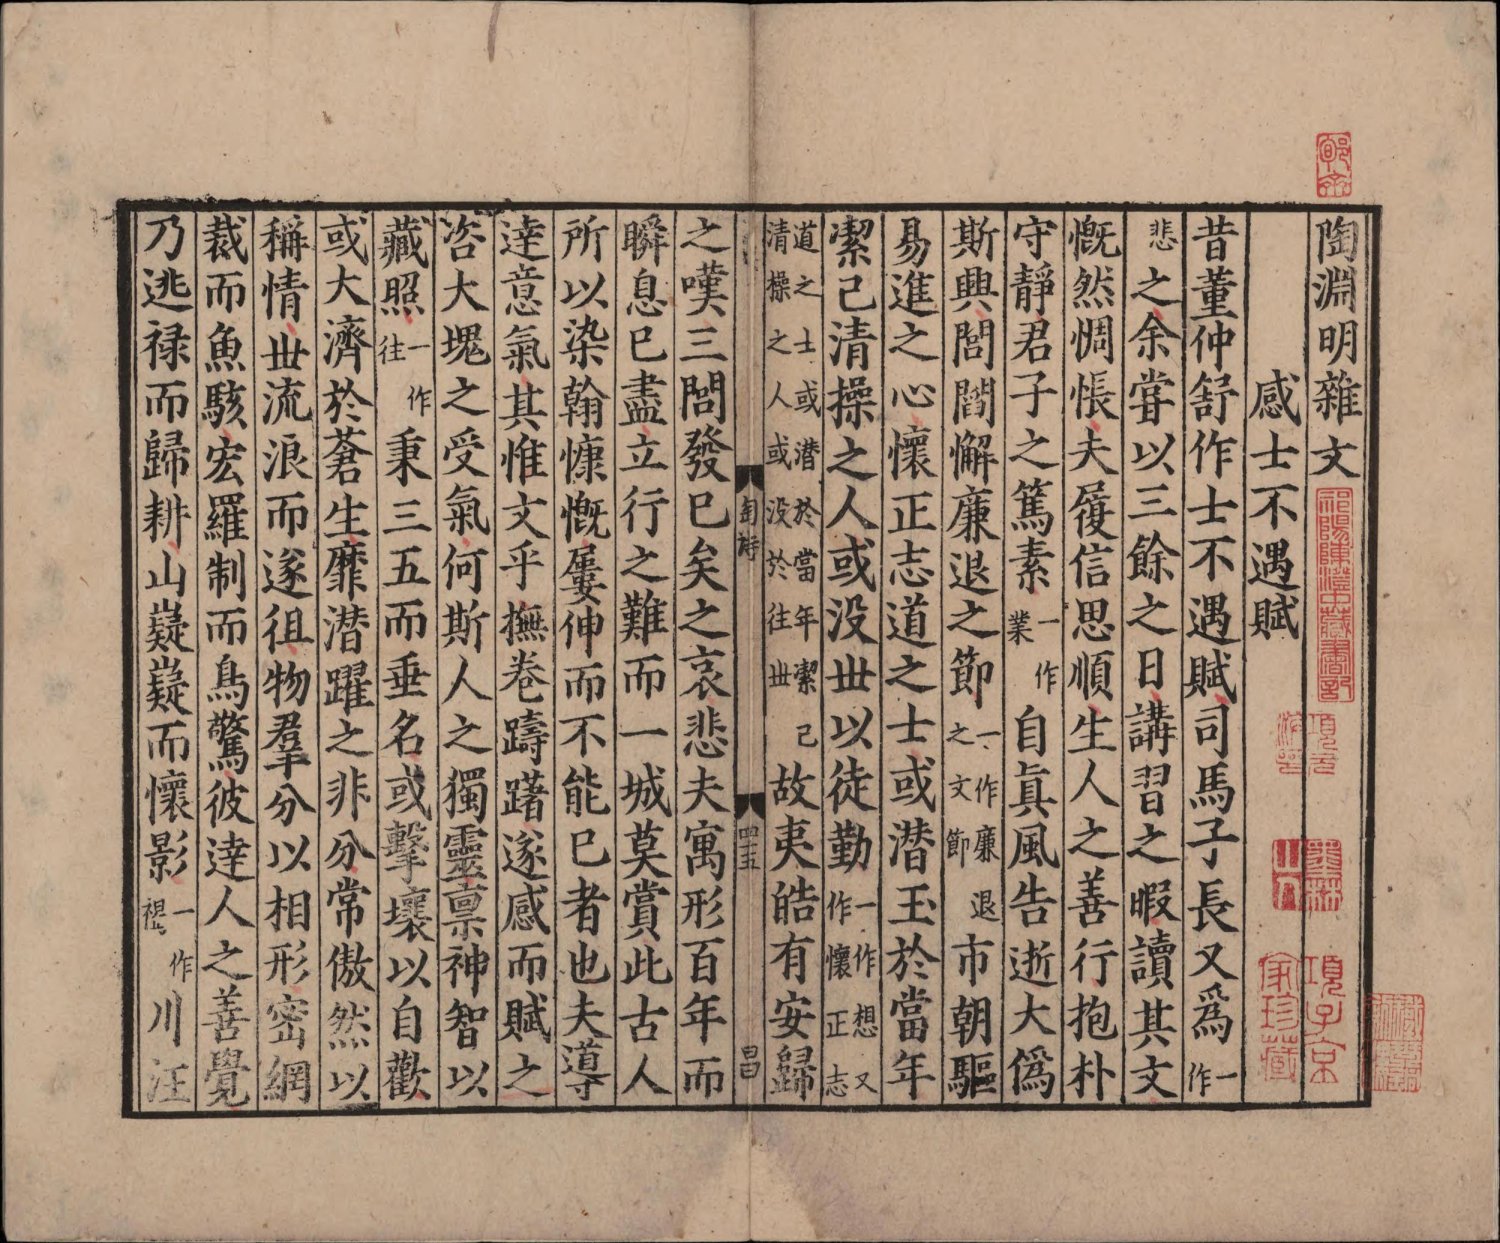 陶淵明雜文
感士不遇賦
昔董仲舒作士不遇賦司馬子長又爲一作
悲之余嘗以三餘之日講習之暇讀其文
慨然惆悵夫履信思順生人之善行抱朴
守靜君子之篤素一作業自眞風告逝大僞
斯興閭閻懈廉退之節一作廉退之文節市朝驅
易進之心懷正志道之士或潛玉於當年
潔己清操之人或没丗以徒勤一作想又作懷正志
道之士或潛於當年潔己清操之人或没於往丗故夷皓有安歸
陶詩
四十五
昌
之嘆三閭發已矣之哀悲夫寓形百年而
瞬息已盡立行之難而一城莫賞此古人
所以染翰慷慨屢伸而不能已者也夫導
達意氣其惟文乎撫卷躊躇遂感而賦之
咨大塊之受氣何斯人之獨靈禀神智以
藏照一作往秉三五而垂名或擊壤以自歡
或大濟於蒼生靡潛躍之非分常傲然以
稱情丗流浪而遂徂物羣分以相形密網
裁而魚駭宏羅制而鳥驚彼達人之善覺
乃逃禄而歸耕山嶷嶷而懷影一作褪川汪
祁陽陳澄中藏書記
項子京家珍藏